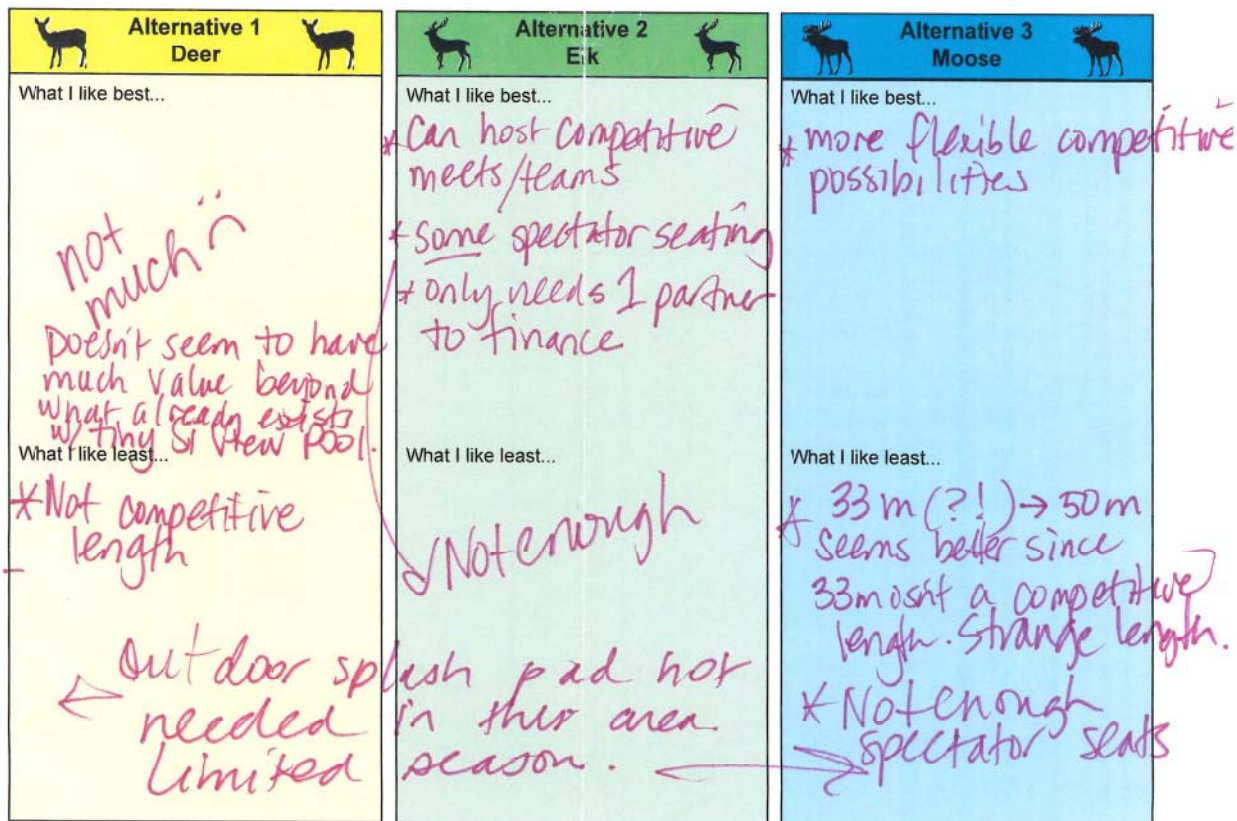 Alternative 1
Deer
What I like best...
not
much
Doesn't seem to have
much value beyond
what already exists
w/ tiny Si View pool.
What I like least...
*Not competitive
length
Alternative 2
Elk
What I like best...
* Can host competitive
meets/teams
* some spectator seating
* only needs 1 partner
to finance
What I like least...
Not enough
Alternative 3
Moose
What I like best...
* more flexible competitive
possibilities
What I like least...
* 33 m (?!) → 50 m
seems better since
33m isn't a competitive
length. Strange length.
* Not enough
spectator seats
outdoor splash pad not
needed in this area.
Limited season.